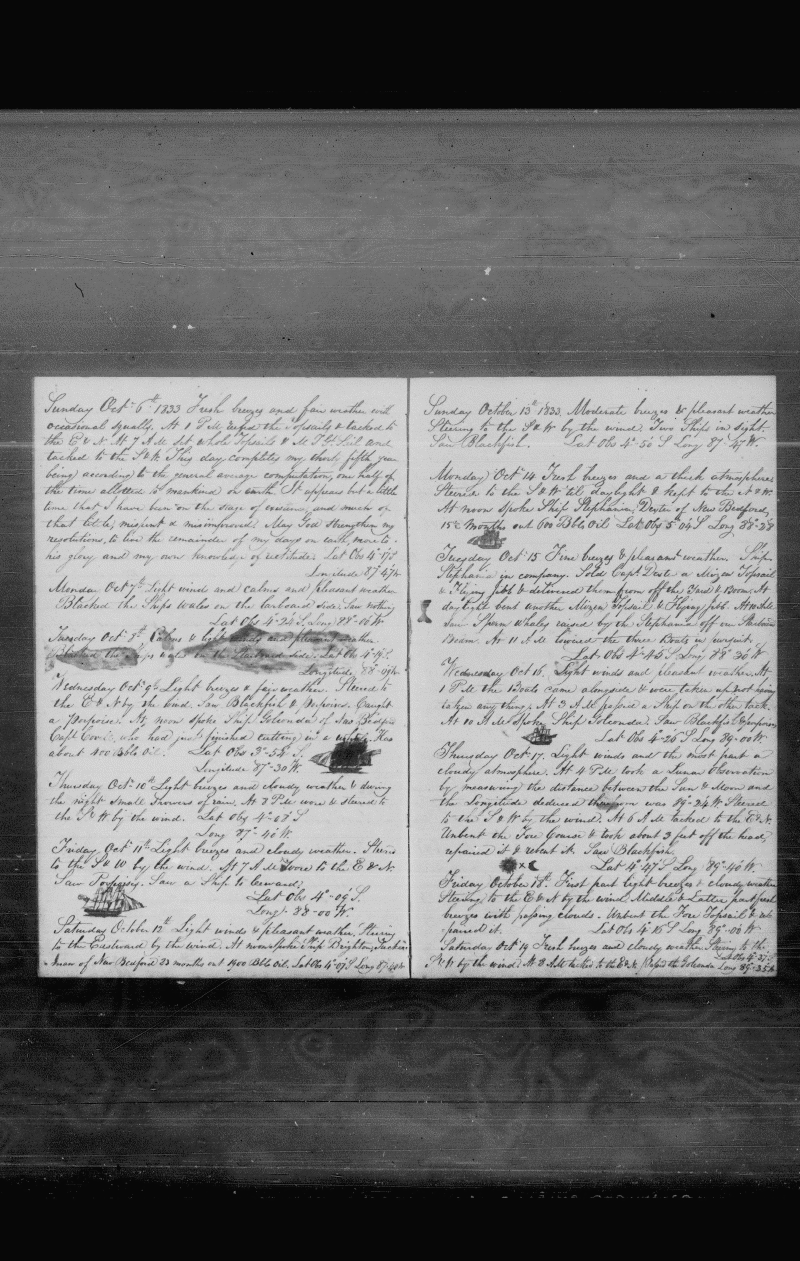 Sunday Oct 6th 1833 Fresh breezes and fair weather with
occasional squalls. At 1 P M reefed the Topsails & tacked to
the E & N. At 7 A M set whole Topsails & M T G Sail and
tacked to the S & W. This day completes my thirty fifth year
being according to the general average computation, one half of
the time allotted to mankind on earth. It appears but a little
time that I have been on the stage of and much of
that little, mispent & misimproved. May God strengthen my
to live the remainder of my days on earth, more to
his glory and my own knowledge of rectitude. Lat Obs 4°-17 S
Longitude 87-47 W.
Monday Oct 7th Light wind and calms and pleasant weather
Blacked the Ships Wales on the larboard side. Saw nothing
Lat Obs 4°-24 S. Long 88°-00 W
Tuesday Oct 8th Calms & light winds and pleasant weather
Blacked the Ships wales on the Starboard side. Lat Obs 4°-19 S.
Longitude 88°-
Wednesday Oct 9th Light breezes & fair weather. Steered to
the E & N by the wind. Saw Blackfish & Porpoises. Caught
a Porpoise. At noon spoke Ship Golconda of New Bedford
Capt who had just finished cutting in a whale. Has
about 400 Bbls Oil. Lat Obs 3°-54 S.
Longitude 87°-30 W.
Thursday Oct 10th Light breezes and cloudy weather & during
the night small showers of rain. At 8 P M wore & steered to
the S & W by the wind. Lat Obs 4°-08 S
Long 87°-40 W.
Friday Oct 11th Light breezes and cloudy weather. Steered
to the S & W by the wind. At 7 A M Wore to the E & N.
Saw Saw a Ship to leeward.
Lat Obs 4°-09 S.
Long. 88-00 W.
Saturday October 12th Light winds & pleasant weather, Steering
to the Eastward by the wind. At noon spoke Ship Brighton,
of New Bedford 23 months out 1900 Bbls Oil. Lat Obs 4°-09 S Long 87-40 W
Sunday October 13th 1833. Moderate breezes & pleasant weather
Steering to the S & W by the wind. Two Ships in sight.
Saw Blackfish. Lat Obs 4°-50 S Long 87°-47 W.
Monday Oct 14 Fresh breezes and a thick atmosphere
Steered to the S & W til daylight & kept to the N & W.
At noon spoke Ship Stephania, Dexter of New Bedford,
15½ months out 600 Bbls Oil Lat Obs 5°04 S Long 88°-28
Tuesday Oct 15 Fine breezes & pleasant weather. Ship
Stephania in company. Sold Capt Dexter a Mizen Topsail
& Flying jibb & delivered them from off the Yard & Boom. At
daylight bent another Mizen Topsail & Flying jibb. At 10 A M
Saw Sperm whales raised by the Stephania off our Starboard
Beam. At 11 A M lowered the three Boats in pursuit.
Lat. Obs 4°-46 S Long 88°36 W
Wednesday Oct 16. Light winds and pleasant weather. At
1 P M the Boats came alongside & were taken up not having
taken any thing. At 3 A M passed a Ship on the other tack.
At 10 A M Spoke Ship Golconda. Saw Blackfish & porpoises
Lat Obs 4°-26 S Long 89-00 W.
Thursday Oct 17. Light winds and the most part a
cloudy atmosphere. At 4 P M took a Lunar Observation
by measuring the distance between the Sun & Moon and
the Longitude deduced therefrom was 89°-24 W. Steered
to the S & W by the wind. At 6 A M tacked to the E & N.
Unbent the Fore Course & took about 3 feet off the head,
repaired it & rebent it. Saw Blackfish.
Lat 4°47 S Long 89°-40 W.
Friday October 18th. First part light breezes & cloudy weather
Steering to the E & N by the wind. Middle & Latter part fresh
breezes with passing clouds. Unbent the Fore Topsail & re-
paired it. Lat Obs 4° 15 S Long 89°-00 W
Saturday Oct 19 Fresh breezes and cloudy weather Steering to the
Lat Obs 4°-37 S
S & W by the wind. At 8 A M tacked to the E & N. Passed the Golconda Long 89°-35 W